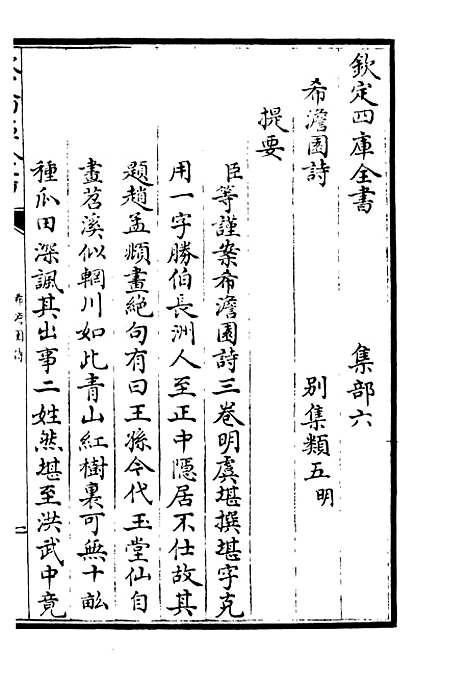 欽定四庫全書　集部六
希澹園詩　別集類五明
提要
臣等謹案希澹園詩三卷明虞堪撰堪字克
用一字勝伯長洲人至正中隱居不仕故其
題趙孟頫畫絶句有曰王孫今代玉堂仙自
畫苕溪似輞川如此青山紅樹裏可無十畝
種瓜田深諷其出事二姓然堪至洪武中竟
希澹園詩